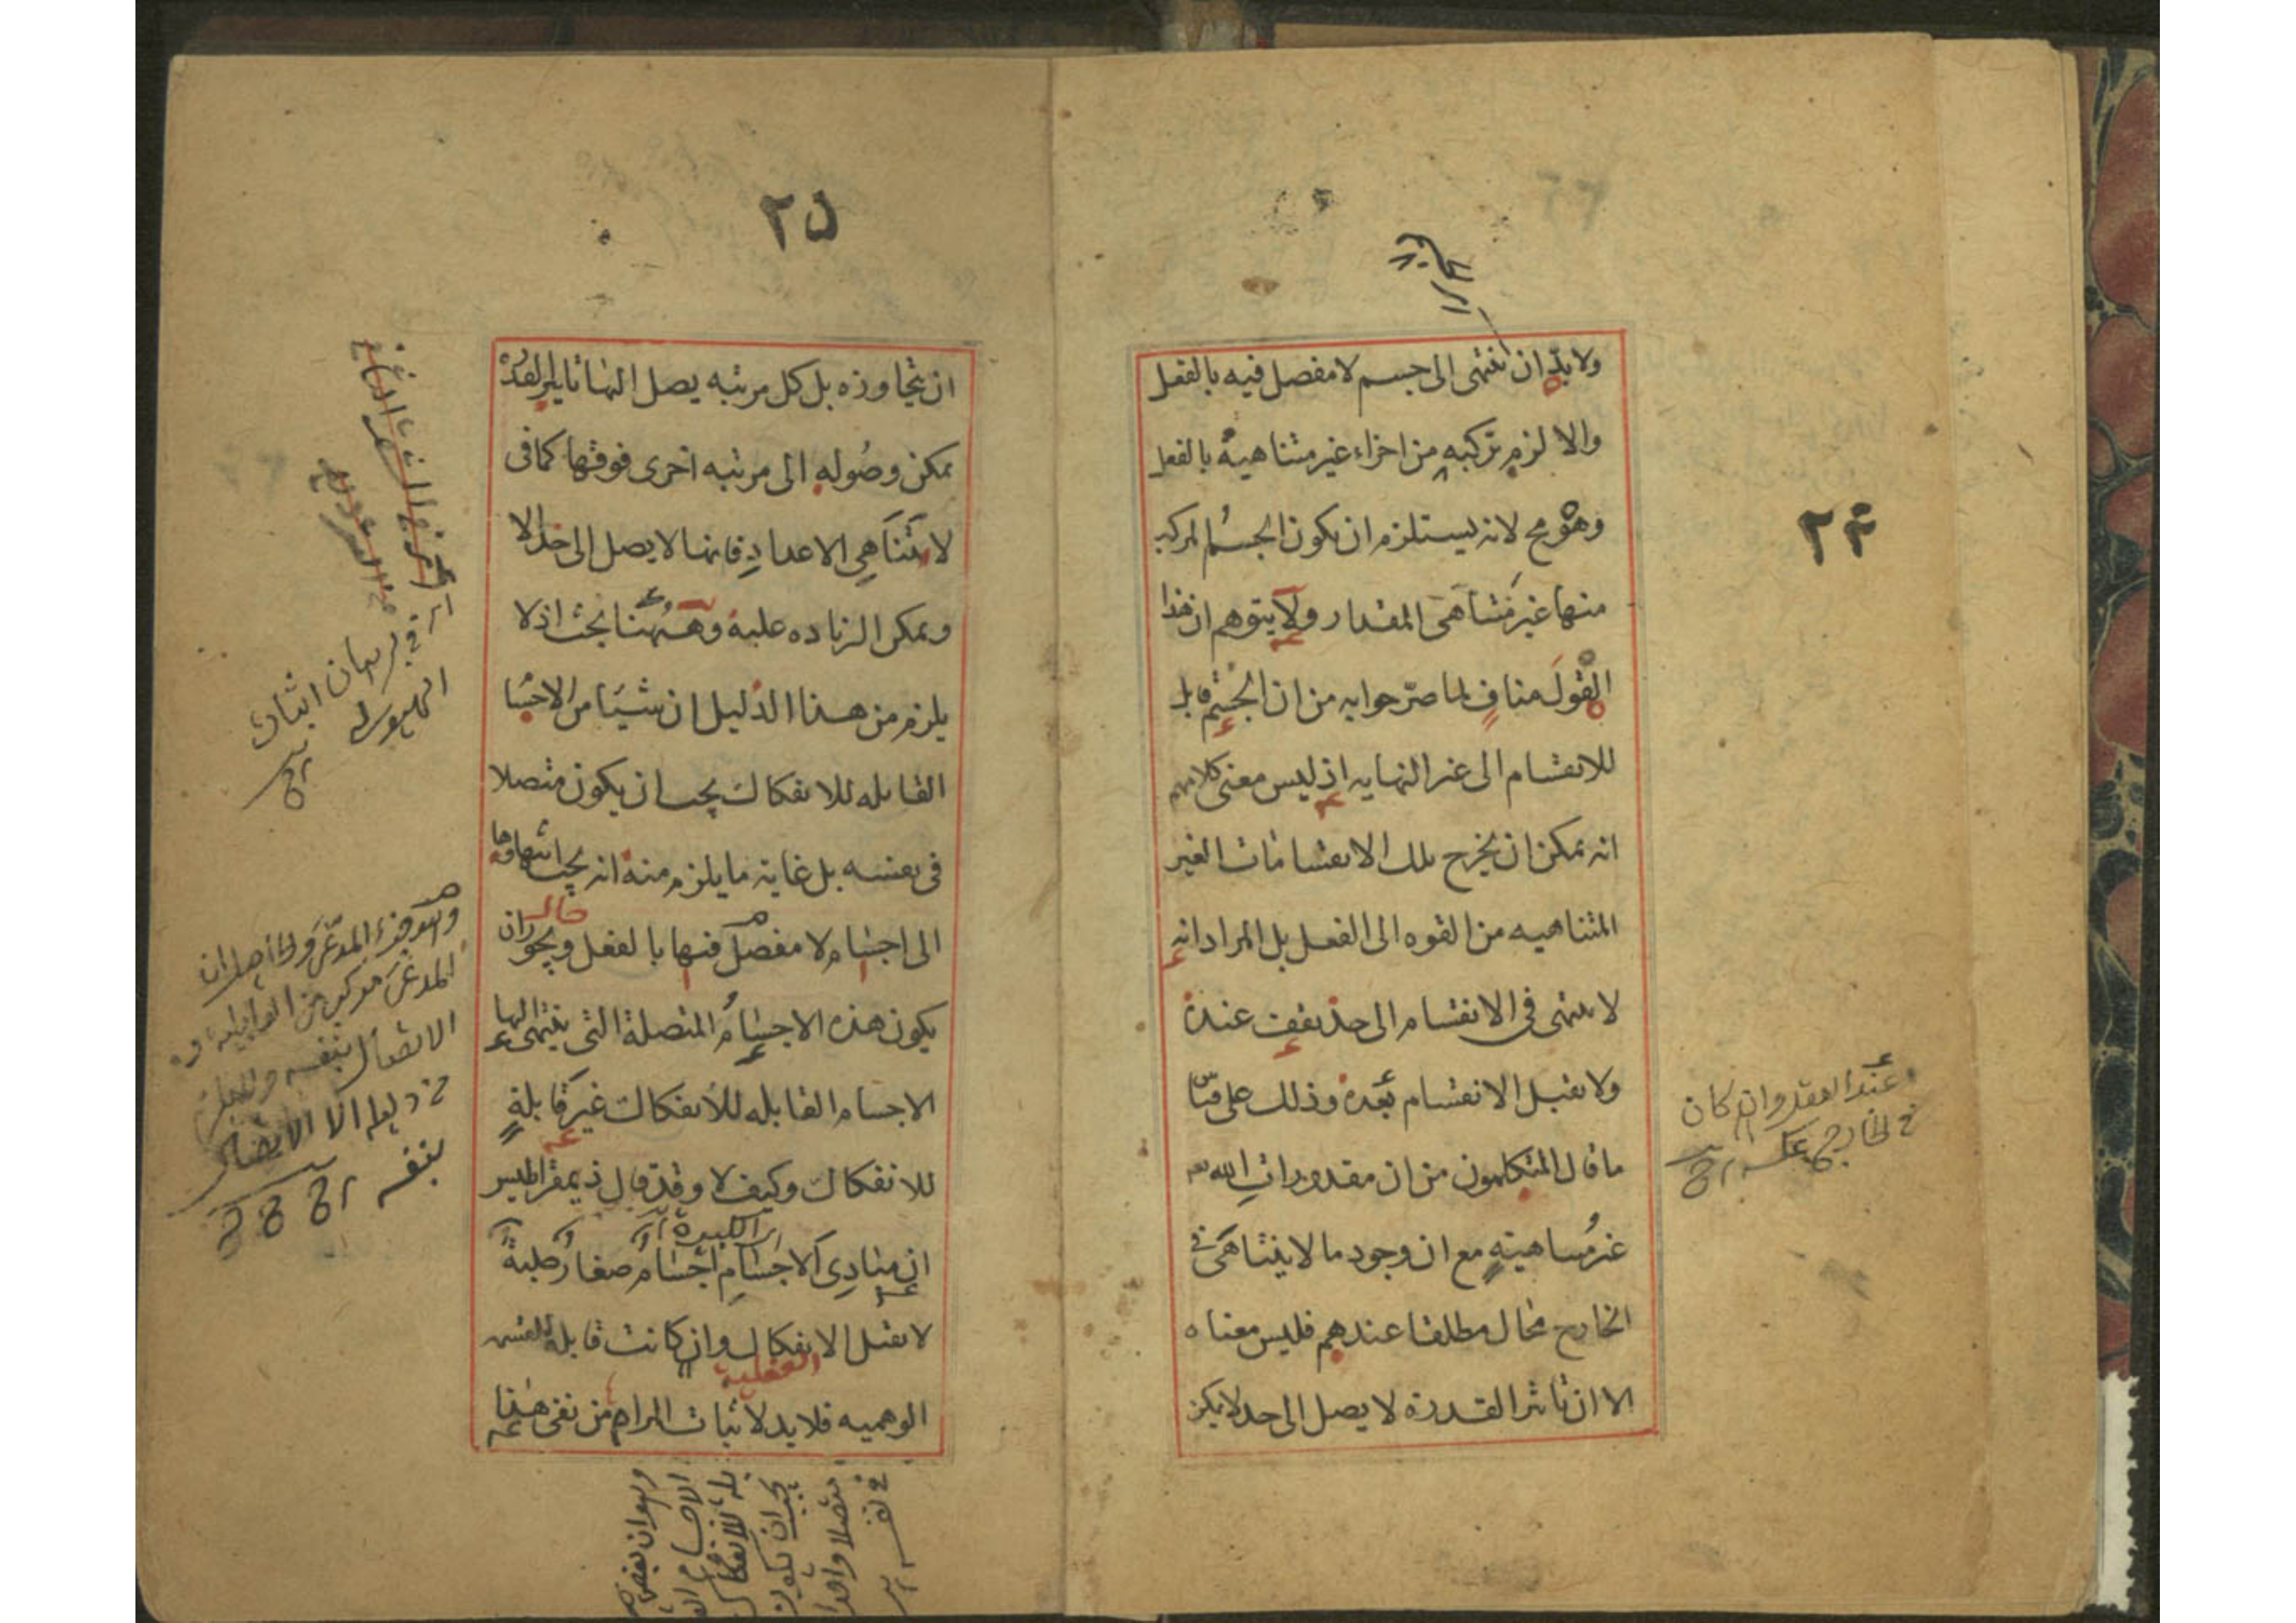 ٢٤
ولا بدّ ان ينتهى الى جسم لا مفصل فيه بالفعل
والا لزم تركبه من اجزاء غير متناهية بالفعل
وهو مح لانه يستلزم ان يكون الجسم المركب
منها غير متناهى المقدار ولا يتوهم ان هذا
القول مناف لما صرّحوا به من ان الجسم قابل
للانقسام الى غير النهايه اذ ليس معنى كلامهم
انه يمكن ان يخرج تلك الانقسامات الغير
المتناهيه من القوه الى الفعل بل المراد انه
لا ينتهى فى الانقسام الى حد يقف عنده
ولا يقبل الانقسام بعده وذلك على قياس
ما قال المتكلمون من ان مقدورات الله تعه
غير متناهية مع ان وجود ما لا يتناهى فى
الخارج محال مطلقا عندهم فليس معناه
الا ان تاثير القدرة لا يصل الى حد لا يمكن
عند العقل وان كان
فى الخارج
٢٥
ان يتجاوزه بل كل مرتبه يصل اليها تاثير القدرة
يمكن وصوله الى مرتبه اخرى فوقها كما فى
لا تناهى الاعداد فانها لا يصل الى حد الا
ويمكن الزياده عليه وههنا بحث اذ لا
يلزم من هذا الدليل ان شيئا من الاجسام
القابله للانفكاك يجب ان يكون متصلا
فى نفسه بل غاية ما يلزم منه انه يجب انتهاؤها
الى اجسام لا مفصل فيها بالفعل ويجوز ان
يكون هذه الاجسام المتصلة التى ينتهى اليها
الاجسام القابله للانفكاك غير قابلة
للانفكاك وكيف لا وقد قال ذيمقراطيس
ان مبادى الاجسام اجسام صغار صلبة
لا يقبل الانفكاك وان كانت قابلة للقسمه
الوهميه فلا بد لاثبات المرام من نفى هذا
فى برهان اثبات
الهيولى
الا الاتصال
بنفسه
وهو ان بعض
الاجسام القا
بله للانفكاك
يجب ان يكون
متصلا واحدا
فى نفسه